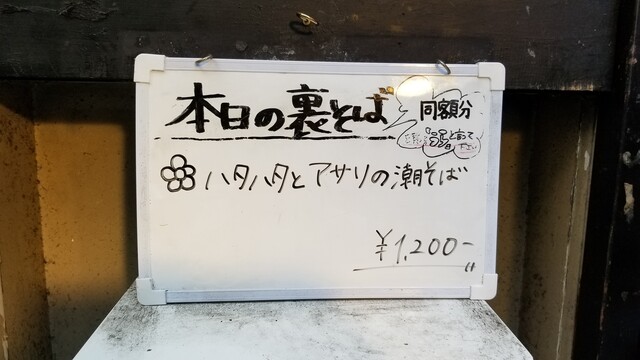 本日の裏そば
同額分
ハタハタとアサリの潮そば
¥1,200-